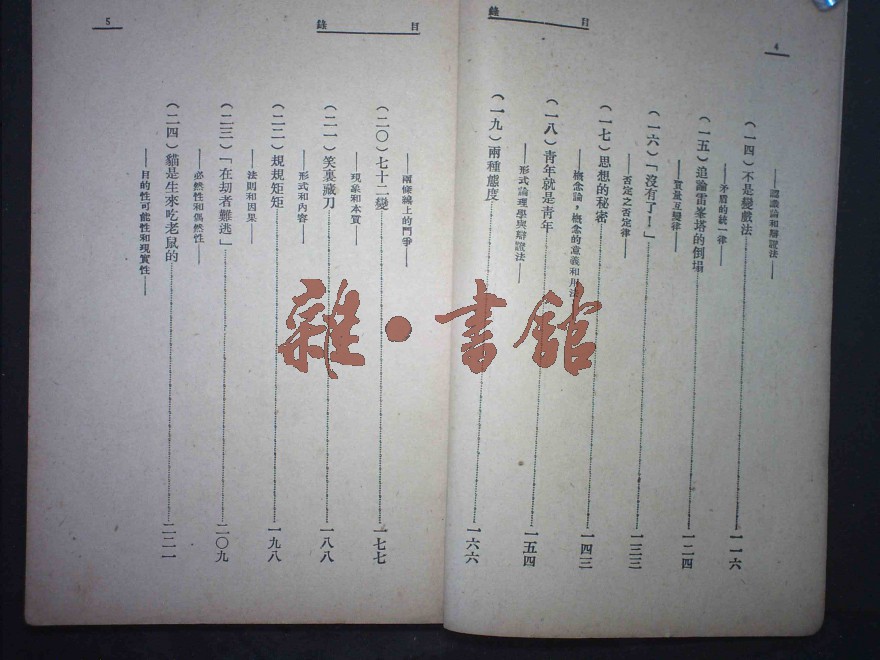 4
目錄
——認識論和辯證法——
(一四)不是變戲法……一一六
——矛盾的統一律——
(一五)追論雷峯塔的倒塌……一二四
——質量互變律——
(一六)「沒有了!」……一三三
——否定之否定律——
(一七)思想的秘密……一四三
——概念論,概念的意義和用法
(一八)青年就是青年……一五四
——形式論理學與辯證法——
(一九)兩種態度……一六六
目錄
5
——兩條線上的鬥爭——
(二〇)七十二變……一七七
——現象和本質——
(二一)笑裏藏刀……一八八
——形式和內容——
(二二)規規矩矩……一九八
——法則和因果——
(二三)「在劫者難逃」……二〇九
——必然性和偶然性——
(二四)貓是生來吃老鼠的……二二一
——目的性可能性和現實性——
雜·書館